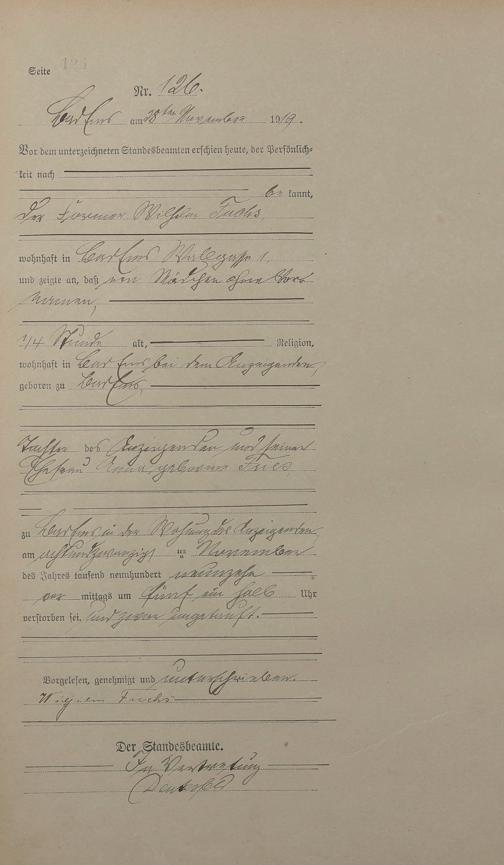 Seite 124
Nr. 126.
Bad Ems am 28ten November 1919.
Vor dem unterzeichneten Standesbeamten erschien heute, der Persönlich-
keit nach
be kannt,
der Former Wilhelm Fuchs,
wohnhaft in Bad Ems 1,
und zeigte an, daß ein Mädchen ohne Vor-
namen,
1/4 Stunde alt, Religion,
wohnhaft in Bad Ems bei dem Anzeigenden,
geboren zu Bad Ems,
Tochter des Anzeigenden und seiner
Ehefrau geborene Fries
zu Bad Ems in der Wohnung des Anzeigenden
am achtundzwanzigsten November
des Jahres tausend neunhundert neunzehn
vor mittags um fünf ein halb Uhr
verstorben sei, und zwar ungetauft.
Vorgelesen, genehmigt und unterschrieben.
Wilhelm Fuchs
Der Standesbeamte.
In Vertretung